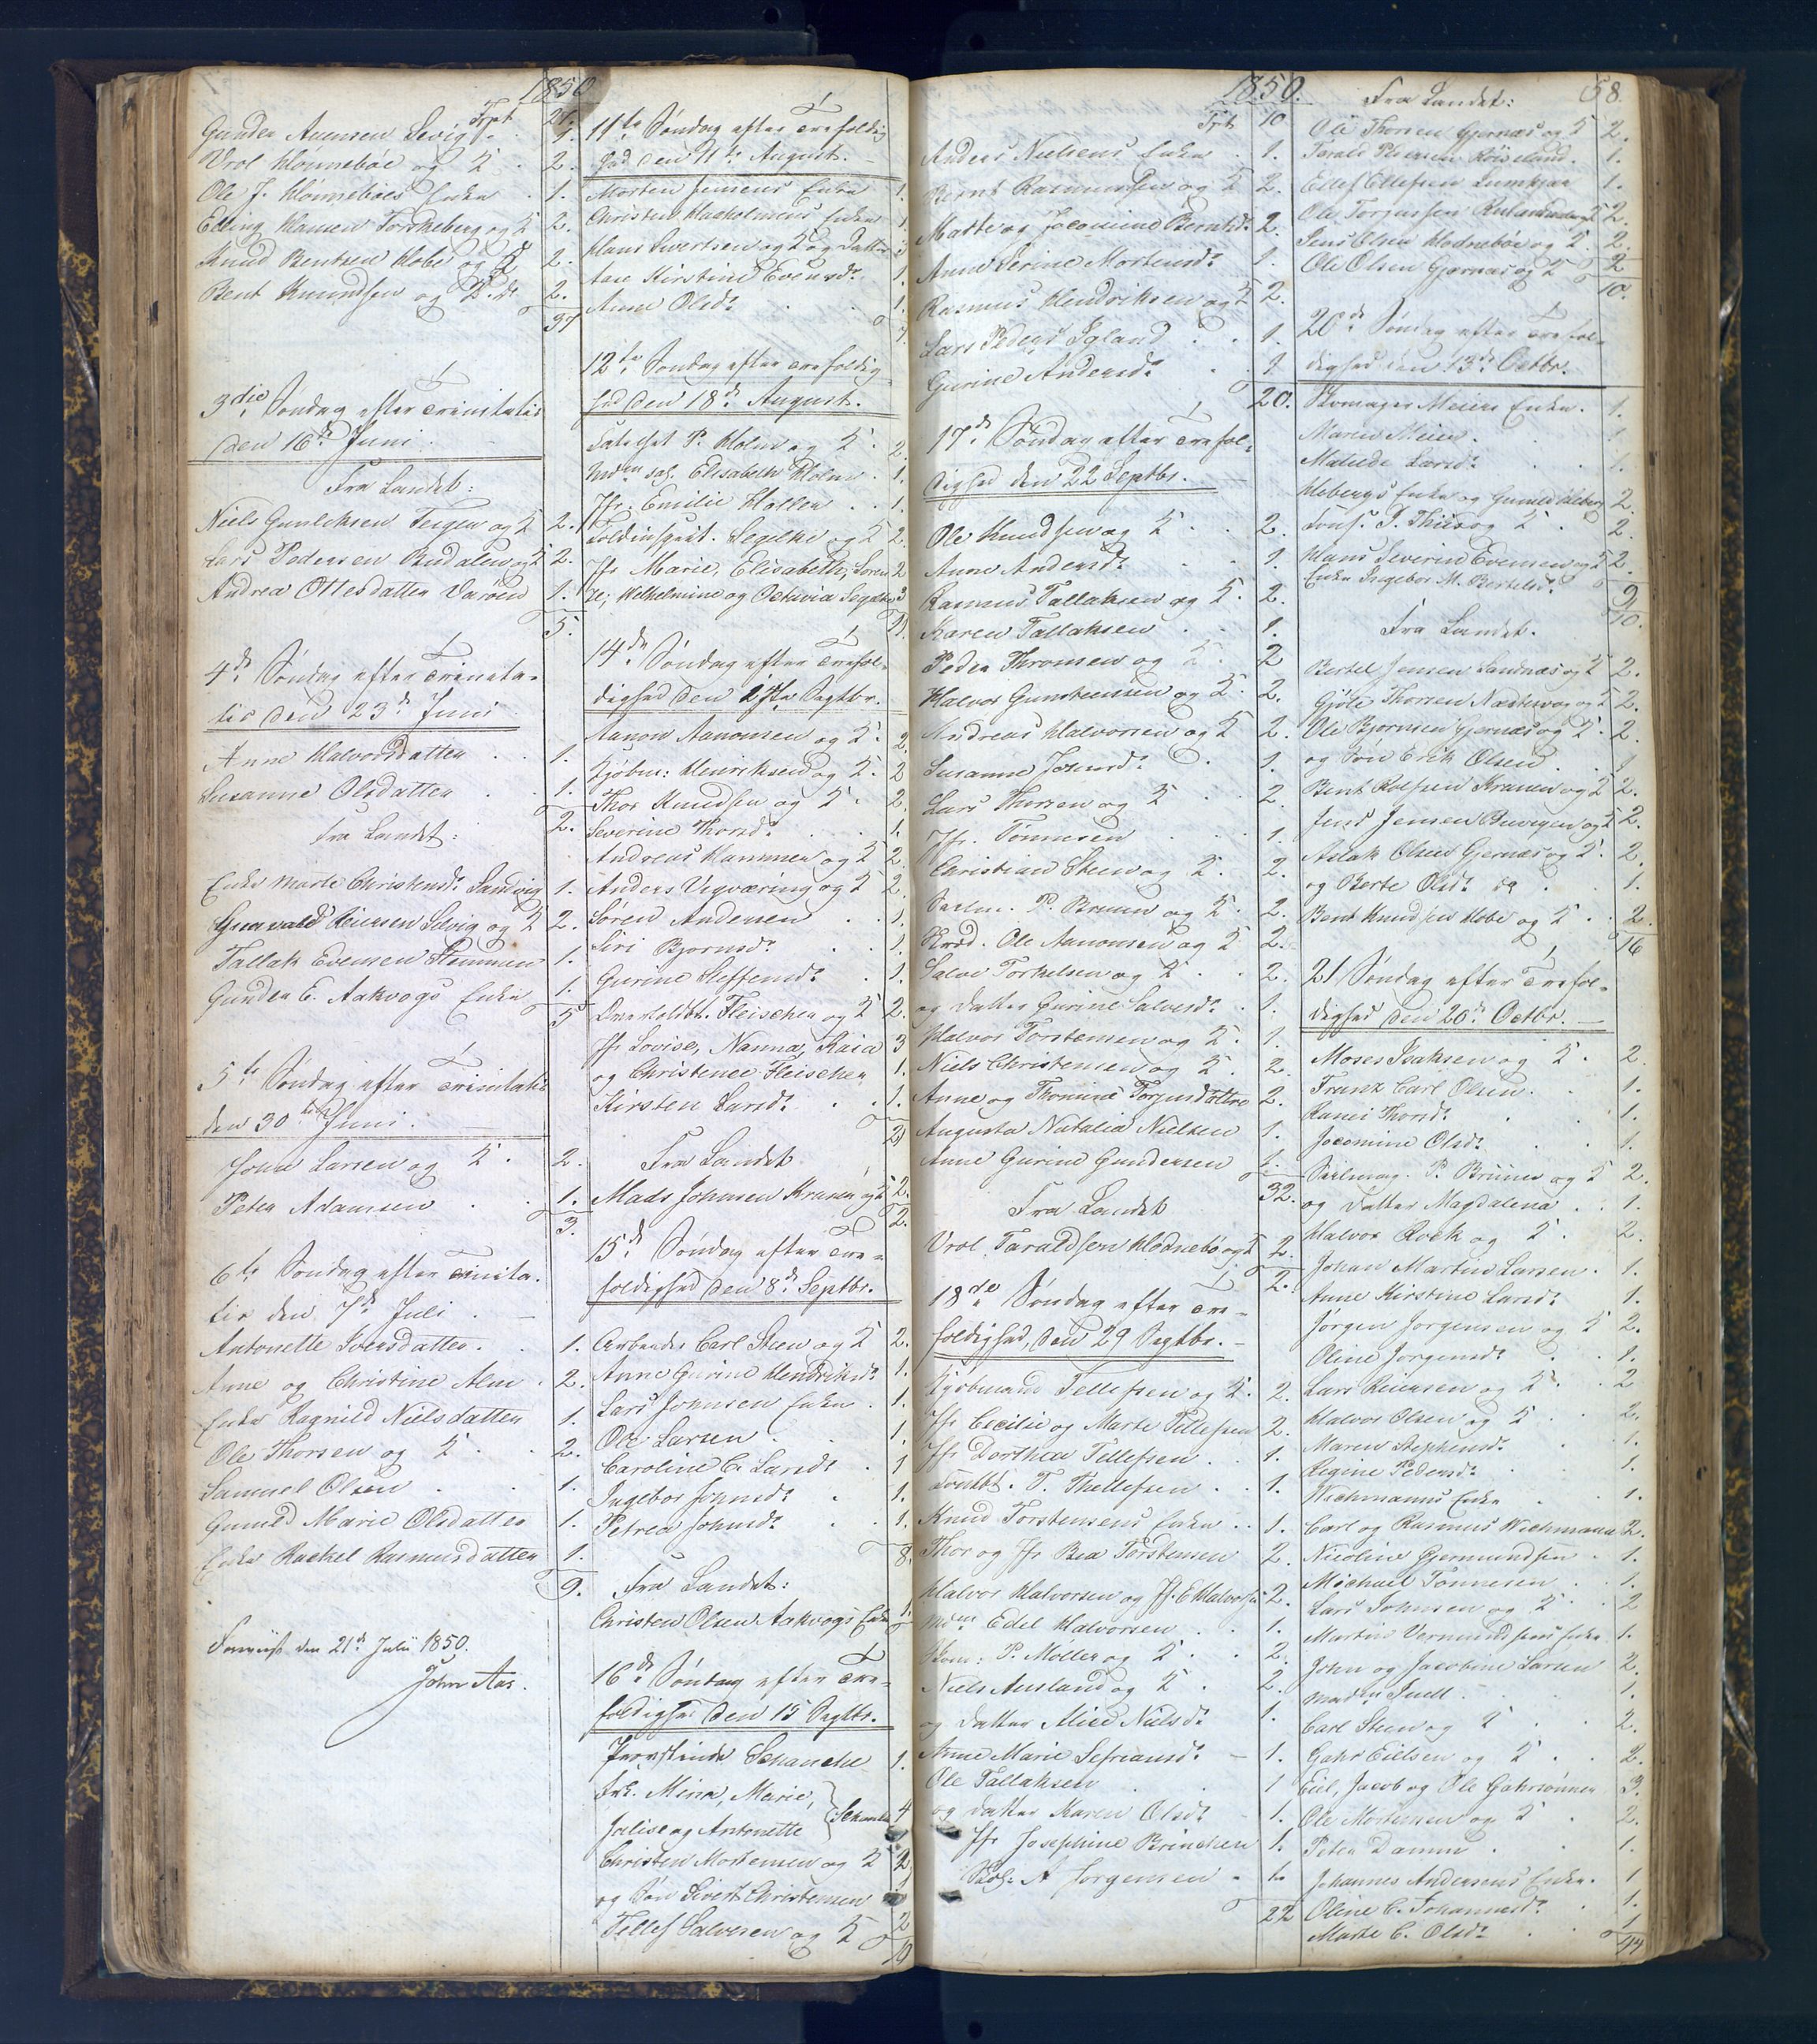 1850
Trpt 21.
Gunder Auensen Sævig 1.
Vrol Honnebøe og K. 2.
Ole J. Honnebøes Enke 1.
Elling Hansen Torskeberg og K 2.
Knud Bentsen Hobe og K 2.
Bent Knudsen og K. 2.
37
3die Søndag efter Trinitatis
den 16de Juni.
Fra Landet:
Niels Gunleksen Teigen og K 2.
Lars Pedersen Budalen og K 2.
Andrea Ottesdatter Varøen 1.
5.
4de Søndag efter Trinita-
tis den 23de Juni
Anne Halvorsdatter 1.
Susanne Olsdatter 1.
2.
Fra Landet:
Enke Marte Christensdr. Sandvig 1.
Gunvald Reiersen Selvig og K 2.
Tallak Evensen Stemmen 1.
Gunder E. Aakvogs Enke 1.
5
5te Søndag efter Trinitatis
den 30te Juni.
John Larsen og K. 2.
Peter Adamsen 1.
3.
6te Søndag efter Trinita-
tis den 7de Juli
Antonette Iversdatter. 1.
Anne og Christine Alm 2.
Enke Ragnild Nielsdatter 1.
Ole Thorsen og K. 2.
Samuel Olsen 1.
Gunild Marie Olsdatter 1.
Enke Rachel Rasmusdatter 1.
9.
Foreviist den 21de Julii 1850.
John Aas.
11te Søndag efter Trefoldig
hed den 11te August.
Morten Jensens Enke 1.
Christen Haaholmens Enke 1.
Hans Sivertsen og K og Datter 3
Aase Kirstine Evensdr. 1.
Anne Olsdr. 1.
7.
12te Søndag efter Trefoldig-
hed den 18de August.
P. Holm og K. 2.
Mdm sal. Elisabeth Holm. 1.
Jfr. Emilie Holler 1.
Toldinspect. Segelke og K 2.
Jfr Marie, Elisabeth, Loren 2
ze, Wilhelmine og Octavia Segelke 3
11.
14de Søndag efter Trefol-
dighed den 1ste Septbr.
Aanon Aanonsen og K. 2.
Kjøbm: Henriksen og K. 2
Thor Knudsen og K. 2.
Severine Thorsdr. 1.
Andreas Hammer og K 2.
Anders Vegværing og K 2.
Søren Andersen 1.
Siri Bjornsdr. 1.
Gurine Steffensdr. 1.
Overtoldbt. Fleischer og K 2.
Jfr Lovise, Nanna, Kaia 3
og Christence Fleischer 1.
Kirsten Larsdr. 1.
Fra Landet
Mads Johnsen Kranen og K 2.
2.
15de Søndag efter Tre-
foldighed den 8de Septbr.
Arbeider Carl Steen og K 2.
Anne Gurine Hendriksdr. 1.
Lars Johnsen Enke 1.
Ole Larsen 1.
Caroline C. Larsdr. 1
Ingebor Johnsdr. 1.
Petrea Johnsdr. 1.
8.
Fra Landet:
Christen Olsen Aakvogs Enke 1.
16de Søndag efter Tre-
foldighed den 15 Septbr.
Provstinde Schanche 1.
Frk. Mina, Marie,
Julise og Antonette } Schanche 4
Christen Mortensen og K 2
og Søn Sivert Christensen
Tellef Salvesen og K 2
10
1850.
Trpt 10
Anders Nielsens Enke 1.
Bernt Rasmussen og K 2.
Mathe og Jacomine Berntsdr. 2.
Anne Serine Mortensdr. 1.
Rasmus Hendriksen og K 2.
Lars Peders Igland 1.
Gurine Andersdr. 1.
20.
17de Søndag efter Trefol-
dighed den 22 Septbr.
Ole Knudsen og K. 2.
Anne Andersdr. 1.
Rasmus Tallaksen og K. 2.
Karen Tallaksen 1.
Peder Thronsen og K. 2
Halvor Gunsteensen og K. 2.
Andreas Halvorsen og K 2.
Susanne Johnsdr. 1.
Lars Thorsen og K 2.
Jfr. Tønnesen 1.
Christian Steen og K. 2.
Seilm. P. Bruun og K. 2.
Kræd. Ole Aanonsen og K 2.
Salve Torkelsen og K 2.
og Datter Gurine Salvesdr. 1.
Halvor Torstensen og K. 1.
Niels Christensen og K. 2.
Anne og Thomine Torgersdøttre 2.
Augusta Natalia Nielsen 1.
Anne Gurine Gundersen 1.
32.
Fra Landet
Vrol Taraldsen Hodnebø og K 2.
2.
18de Søndag efter Tre-
foldighed, den 29 Septbr.
Kjøbmand Tellefsen og K. 2.
Jfr Cecilie og Marte Tellefsen 2.
Jfr Dorthea Tellefsen 1.
T. Thellefsen 1.
Knud Torstensens Enke 1.
Thor og Jfr Bea Torstensen 2.
Halvor Halvorsen og Jf. E Halvorsen 2.
Mdm Edel Halvorsen 1.
Skom: P. Møller og K 2.
Niels Ausland og K 2.
og Datter Alice Nielsdr. 1.
Anne Marie Sefriansdr. 1.
Ole Tallaksen 1
og Datter Karen Olsdr. 1.
Jfr Josephine Brinchen 1.
A Jorgensen 1.
22
58.
Fra Landet:
Ole Thorsen Gjernæs og K 2.
Tarald Pedersen Røiseland. 1.
Ellef Ellefsen Lunkjær 1.
Ole Torjussen og K 2.
Jens Olsen Hodnebøe og K. 2.
Ole Olsen Gjernæs og K 2
10.
20de Søndag efter Trefol-
dighed den 13de Octbr.
Skomager Meiers Enke. 1.
Maren Meier. 1.
Matilde Larsdr. 1.
Hebergs Enke og Gunild Heberg 2.
Cons. P. Thiis og K 2.
Hans Severin Evensen og K 2.
Enke Ingebor M. Bertelsdr.
10.
Fra Landet.
Bertel Jensen Sandnæs og K 2.
Gjøle Thorsen Næstesvog og K 2.
Ole Bjornsen Gjernæs og K. 2.
og Søn Erik Olsen 1
Bent Rolfsen Kranen og K 2.
Jens Jensen Buvigen og K 2.
Aslak Olsen Gjernæs og K. 2.
og Berte Olsdr. 1.
Bent Knudsen Hobe og K. 2.
16
21 Søndag efter Trefol-
dighed den 20de Octbr.
Moses Isaksen og K. 2.
Franz Carl Olsen. 1.
Karen Thorsdr. 1.
Jocomine Olsdr. 1.
Seilmag. P. Bruun og K 2.
og Datter Magdalena 1.
Halvor Rock og K. 2.
Johan Martin Larsen. 1.
Anne Kirstine Larsdr. 1.
Jørgen Jørgensen og K 2.
Oline Jørgensdr. 1.
Lars Reiersen og K. 2
Halvor Olsen og K 2.
Maren Stephensdr. 1.
Regine Pedersdr. 1.
Wichmanns Enke 1.
Carl og Rasmus Wichmann 2.
Nicoline Gjermundsen 1.
Michael Tønnesen 1.
Lars Johnsen og K 2
Martin Vermundsens Enke 1.
John og Jacobine Larsen 2.
Madm Juell 1.
Carl Steen og K 2.
Gahr Eielsen og K 2.
Eiel, Jacob og Ole Gahrsønner 3.
Ole Mortensen og K 2.
Peter Damm 1.
Johannes Andersens Enke. 1
Oline C. Johannesdr. 1.
Marte C. Olsdr. 1
44